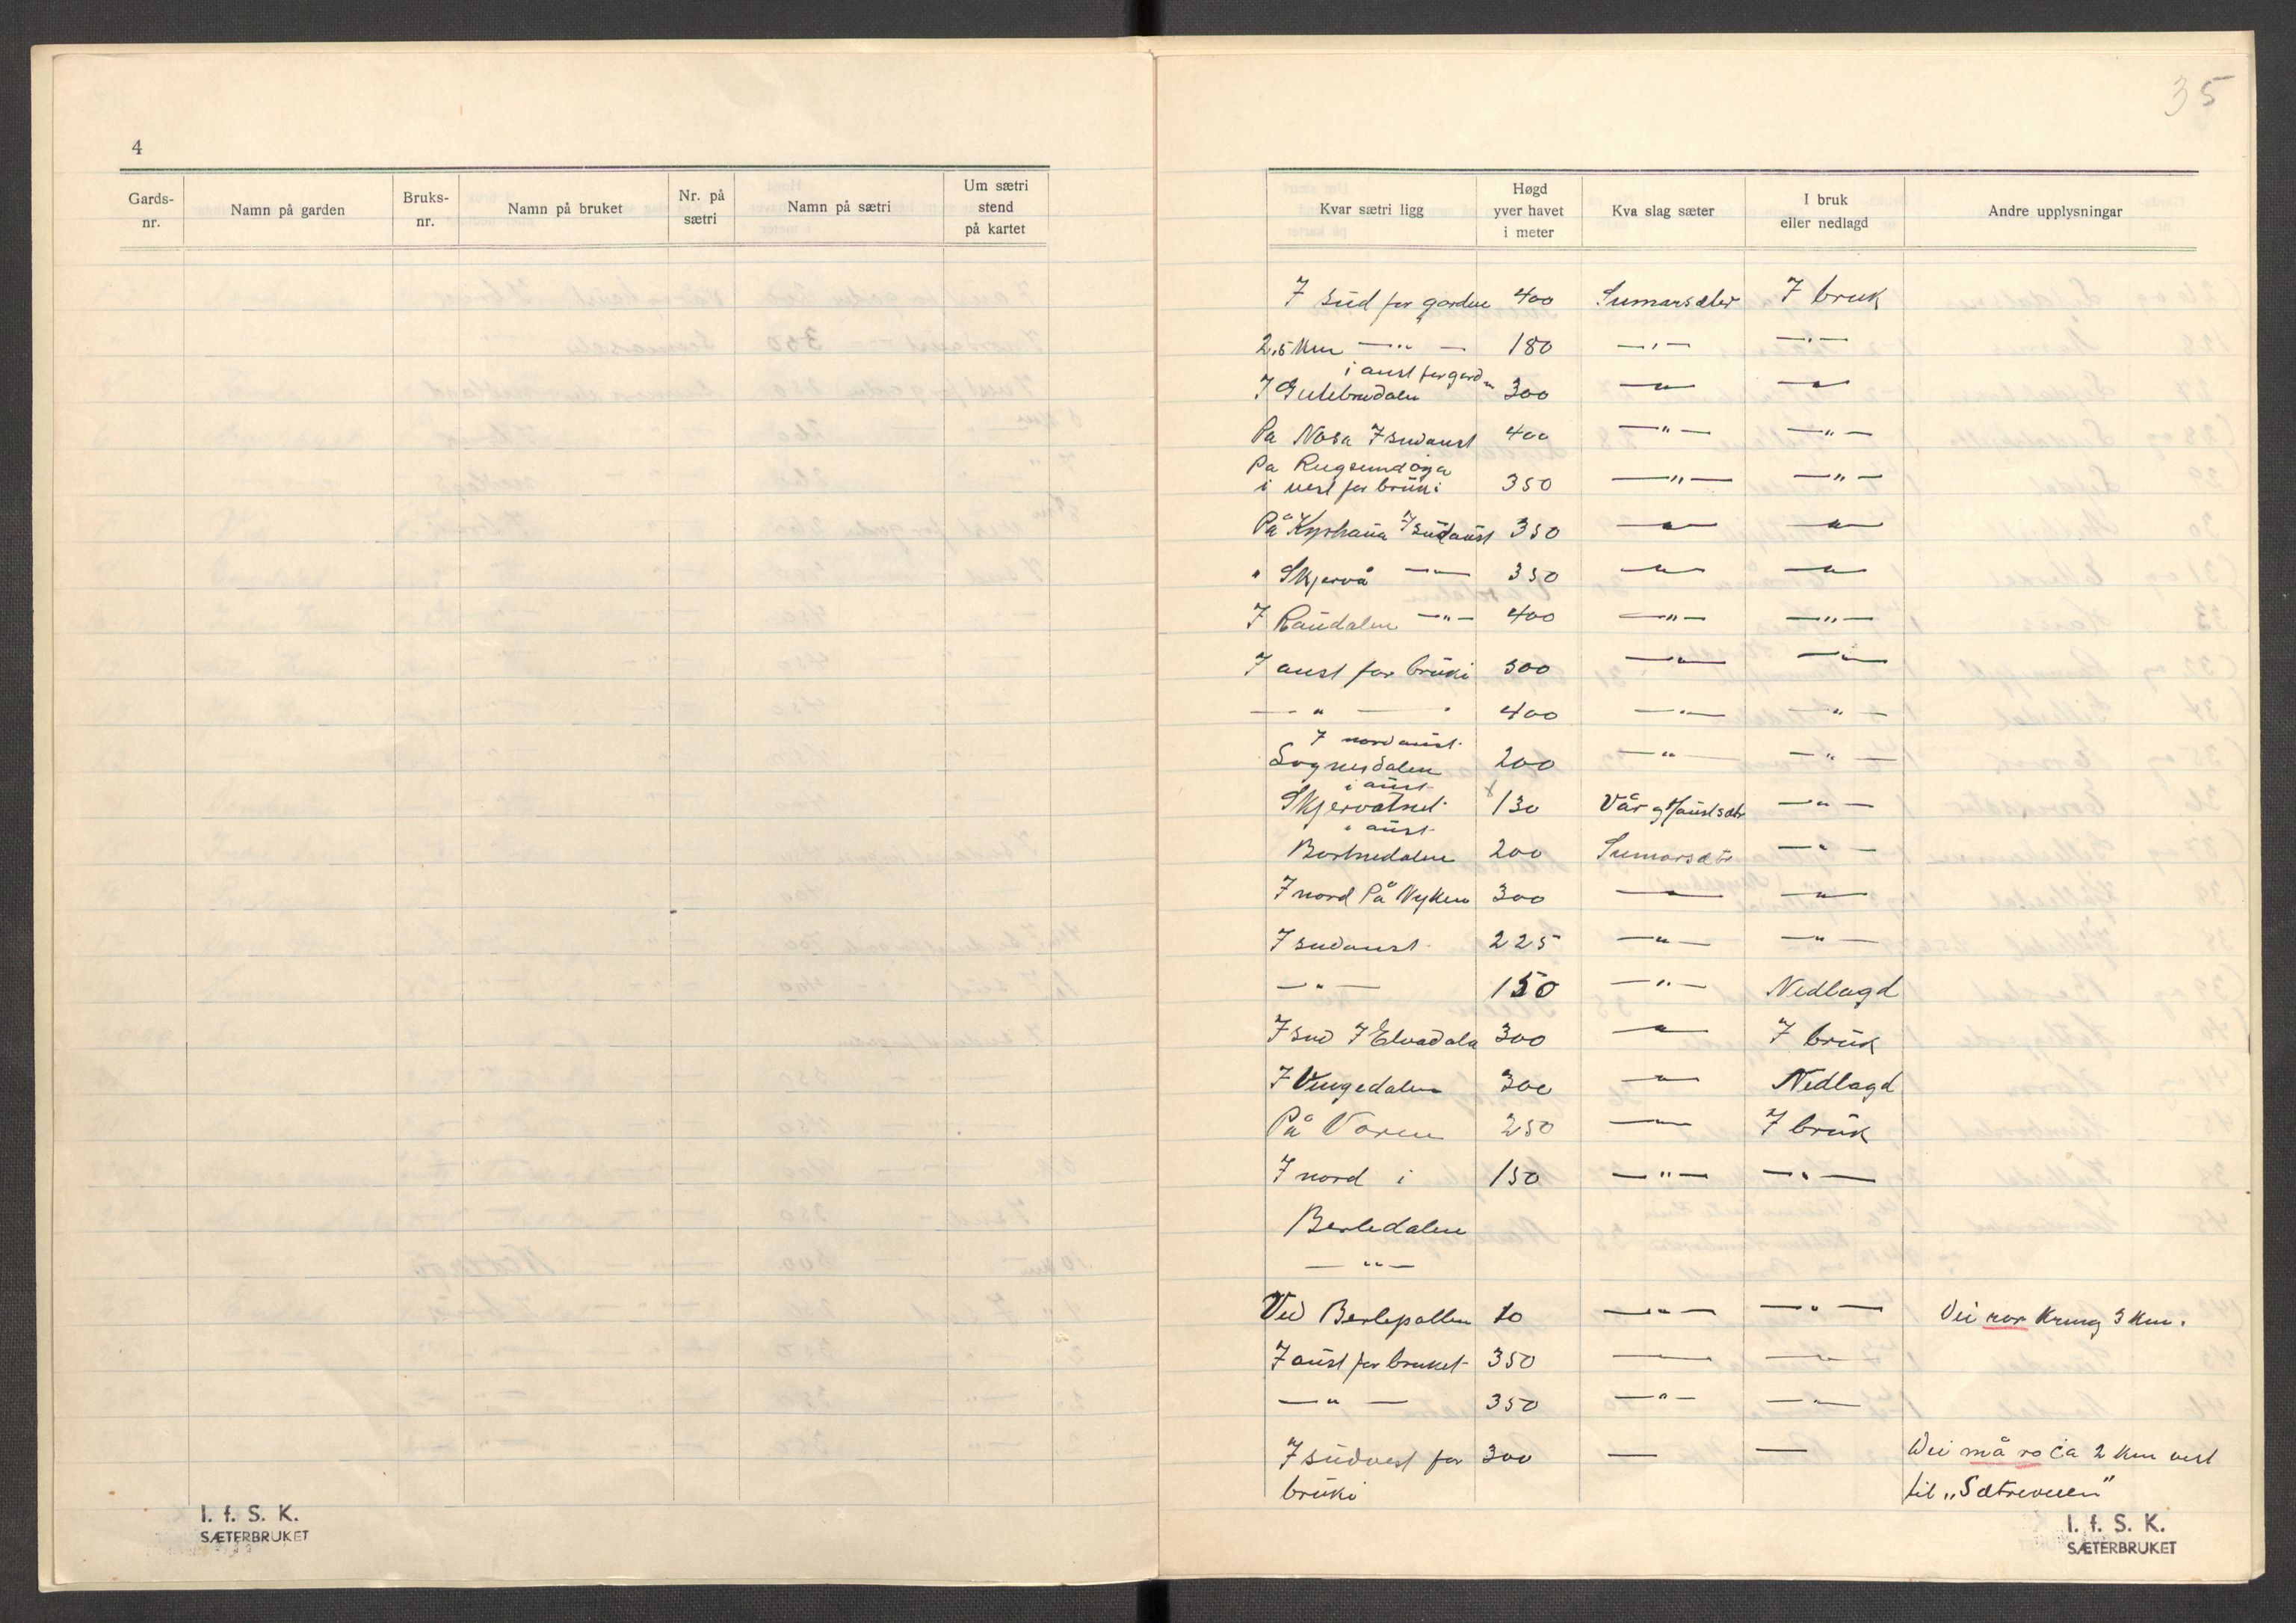 35
4
Gards-
nr.
Namn på garden
Bruks-
nr.
Namn på bruket
Nr. på
sætri
Namn på sætri
Um sætri
stend
på kartet
Kvar sætri ligg
Høgd
yver havet
i meter
Kva slag sæter
I bruk
eller nedlagd
Andre upplysningar
I sud for garden 400 Sumarsæter I bruk
2,5 km — " — 180 — " — — " —
i aust for garden
I Gulebrudalen 300 — " — — " —
Pa Nosa I sudaust 400 — " — — " —
Pa Rugsundöya
i vest for brüki 350 — " — — " —
På Kyrhaua I sudaust 350 — " — — " —
" Skjervå — " — 350 — " — — " —
I Raudalen — " — 400 — " — — " —
I aust for brüki 300 — " — — " —
— " — " 400 — " — — " —
I nordaust
Sognesdalen 200 — " — — " —
i aust
Skjervatnet 130 Vår og Haustsæter — " —
i aust
Bortnedalen 200 Sumarsæter — " —
I nord På Nyken 300 — " — — " —
I sudaust 225 — " — — " —
— " — 150 — " — Nedlagd
I sud I Elvadala 300 — " — I brük
I Vengedalen 300 — " — Nedlagd
På Varen 250 — " — I brük
I nord i 150 — " — — " —
Berledalen
— " —
Ved Berlepollen 10 — " — — " — Dei ror kring 3 km.
I aust for bruket 350 — — " —
— " — 350 — " — — " —
I südvest for 300 — — Dei må ro ca 2 km vest
brüki til „Sætreveien"
I. f. S. K.
SÆTERBRUKET
I. f. S. K.
SÆTERBRUKET